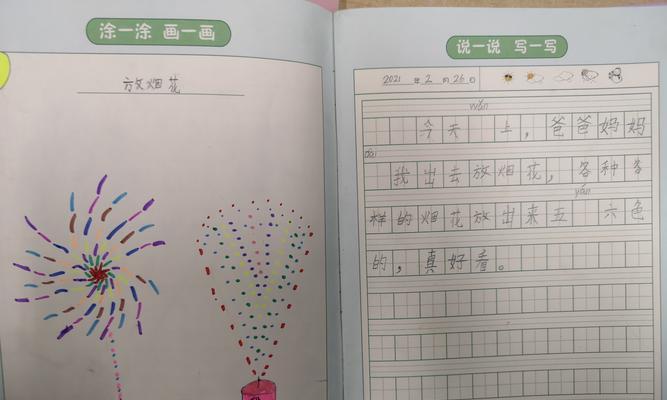 涂一涂 画一画
放烟花
说一说 写一写
2021年2月26日
wǎn
今天 上，爸爸妈妈
dài
我出去放烟花，各种各
yán
样的烟花放出来五 六色
的，真好看。